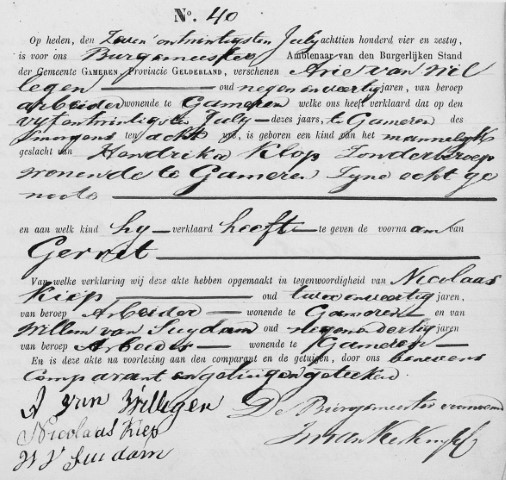 No. 40
Op heden, den Zeven en twintigsten July achttien honderd vier en zestig,
is voor ons Burgemeester Ambtenaar van den Burgerlijken Stand
der Gemeente GAMEREN Provincie GELDERLAND, verschenen Arie van Wil
legen oud negen en veertig jaren, van beroep
arbeider wonende te Gameren welke ons heeft verklaard dat op den
vyf en twintigste July dezes jaars, te Gameren des
smorgens ten acht ure, is geboren een kind van het mannelyk
geslacht van Hendrika Klop Zonder beroep
wonende te Gameren Zyne echt ge
noote
en aan welk kind hy verklaard heeft te geven de voornaam van
Gerret
Van welke verklaring wij deze akte hebben opgemaakt in tegenwoordigheid van Nicolaas
Kiep oud twee en veertig jaren,
van beroep Arbeider wonende te Gameren en van
Willem van Suydam oud negen en dertig jaren
van beroep Arbeider wonende te Gameren
En is deze akte na voorlezing aan den comparant en de getuigen, door ons benevens
Comparant en getuigen geteekend
A van Willigen
Nicolaas Kiep
W V Suidam
De Burgemeester voornoemd